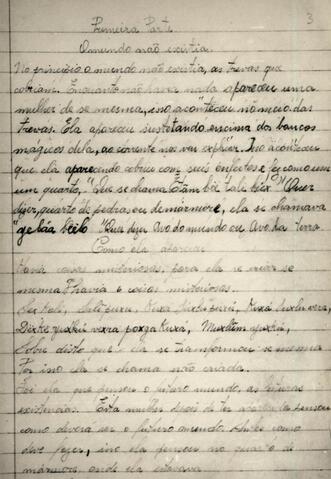 3
Primeira Part
O mundo não existia.
No principio o mundo não existia, as trevas que
cobriam. Enquanto não havia nada apareceu uma
mulher de se mesma, isso aconteceu no meio das
trevas. Ela apareceu sustentando em cima dos bancos
magicos dela, ao corrente nos vai explicar. Isso aconteceu
que ela aparecendo cobriu com suis enfeites e fez como um
um quarto,
dizer, quarto de pedras ou de marmore, ela se chamava
Quer dizer Avo do mundo ou Avo da terra
Como ela apareceu
Havia coisas misteriosas, para ela se criar se
mesma. Havia 6 coisas misteriosas
Sobre disto que ela se transformou se mesma
Por isso ela se chama não criada.
Foi ela que pensou o futuro mundo, as futuras
existencias. Esta mulher depois de ter aparecido pensou
como deverá ser o futuro mundo. Antes como
deve fazer, isso ela pensou no quarto de
mármore, onde ela estava